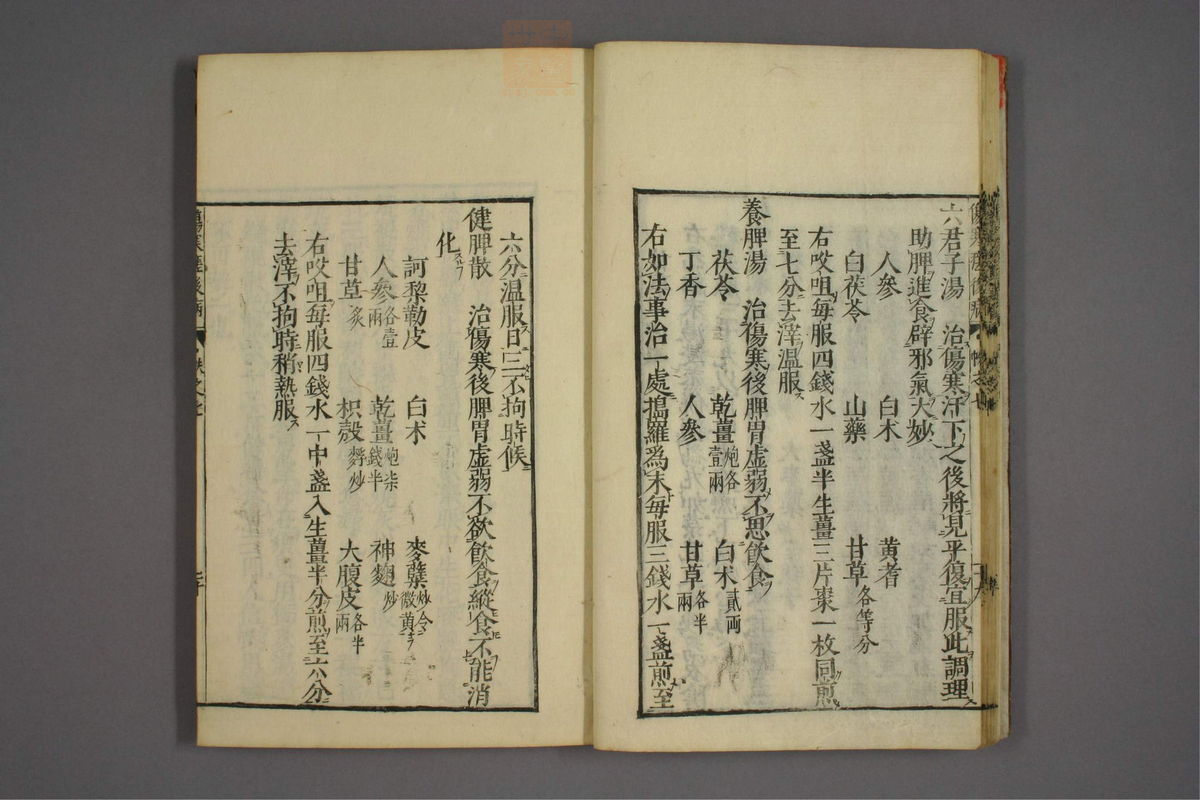 六君子湯　治傷寒汗下之後將見平復宜服此調理
助脾進食辟邪氣大妙
人參　白术　黄耆
白茯苓　山藥　甘草各等分
右㕮咀每服四錢水一盞半生薑三片棗一枚同煎
至七分去滓溫服
養脾湯　治傷寒後脾胃虚弱不思飲食
茯苓　乾薑炮各壹兩　白术貳兩
丁香　人參　甘草各半兩
右如法事治一處擣羅爲末每服三錢水一盞煎至
六分溫服日三不拘時候
健脾散　治傷寒後脾胃虚弱不欲飲食縱食不能消
化
訶黎勒皮　白术　麥糵炒令微黄
人參各壹兩　乾薑炮柒錢半　神麴炒
甘草炙　枳殼麩炒　大腹皮各半兩
右㕮咀每服四錢水一中盞入生薑半分煎至六分
去滓不拘時稍熱服